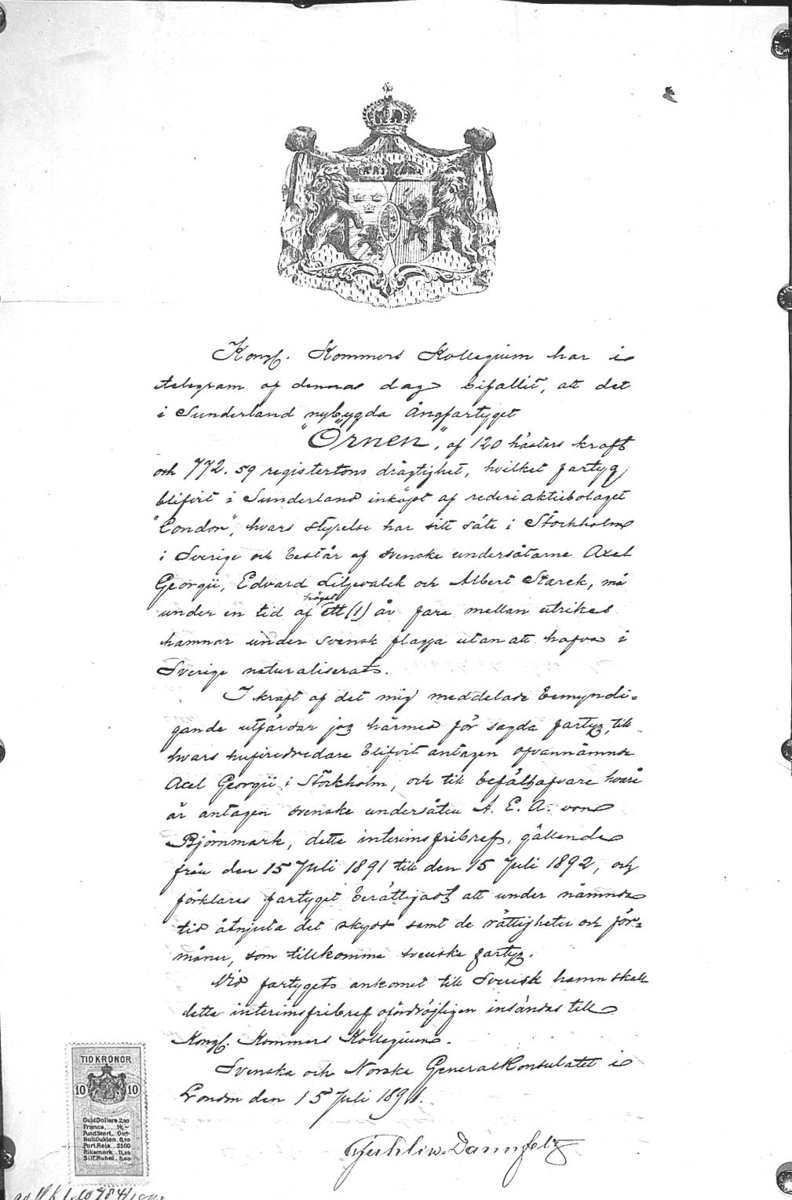 Kongl. Kommers Kollegium har i
telegram af denna dag bifallit, att det
i Sunderland nybygda ångfartyget
"Örnen", af 120 hästars kraft
och 772.59 registertons drägtighet, hvilket fartyg
blifvit i Sunderland inköpt af rederiaktiebolaget
"London", hvars styrelse har sitt säte i Stockholm
i Sverige och består af svenske undersåtarne Axel
Georgii, Edvard Liljevalch och Albert Starck, må
under en tid af högst ett (1) år fara mellan utrikes
hamnar under svensk flagga utan att hafva i
Sverige naturaliserats.
I kraft af det mig meddelade bemyndi-
gande utfärdar jag härmed för sagda fartyg, till
hvars hufvudredare blifvit antagen ofvannämnde
Axel Georgii i Stockholm, och till befälhafvare hvarå
är antagen svenske undersåten A. E. A. von
Björnmark, detta interimsfribref, gällande
från den 15 Juli 1891 till den 15 Juli 1892, och
förklares fartyget berättigadt att under nämnda
tid åtnjuta det skydd samt de rättigheter och för-
måner, som tillkomma svenska fartyg.
Vid fartygets ankomst till Svensk hamn skall
detta interimsfribref ofördröjligen insändas till
Kongl. Kommers Kollegium.
Svenska och Norska Generalkonsulatet i
London den 15 Juli 1891.
Dannfelt
TIO KRONOR
10 10
Guld Dollars 2,80
Francs 14,-
Holl Gulden 6,70
Port. Reis 2500
Riksmark 11,25
Silf. Rubel